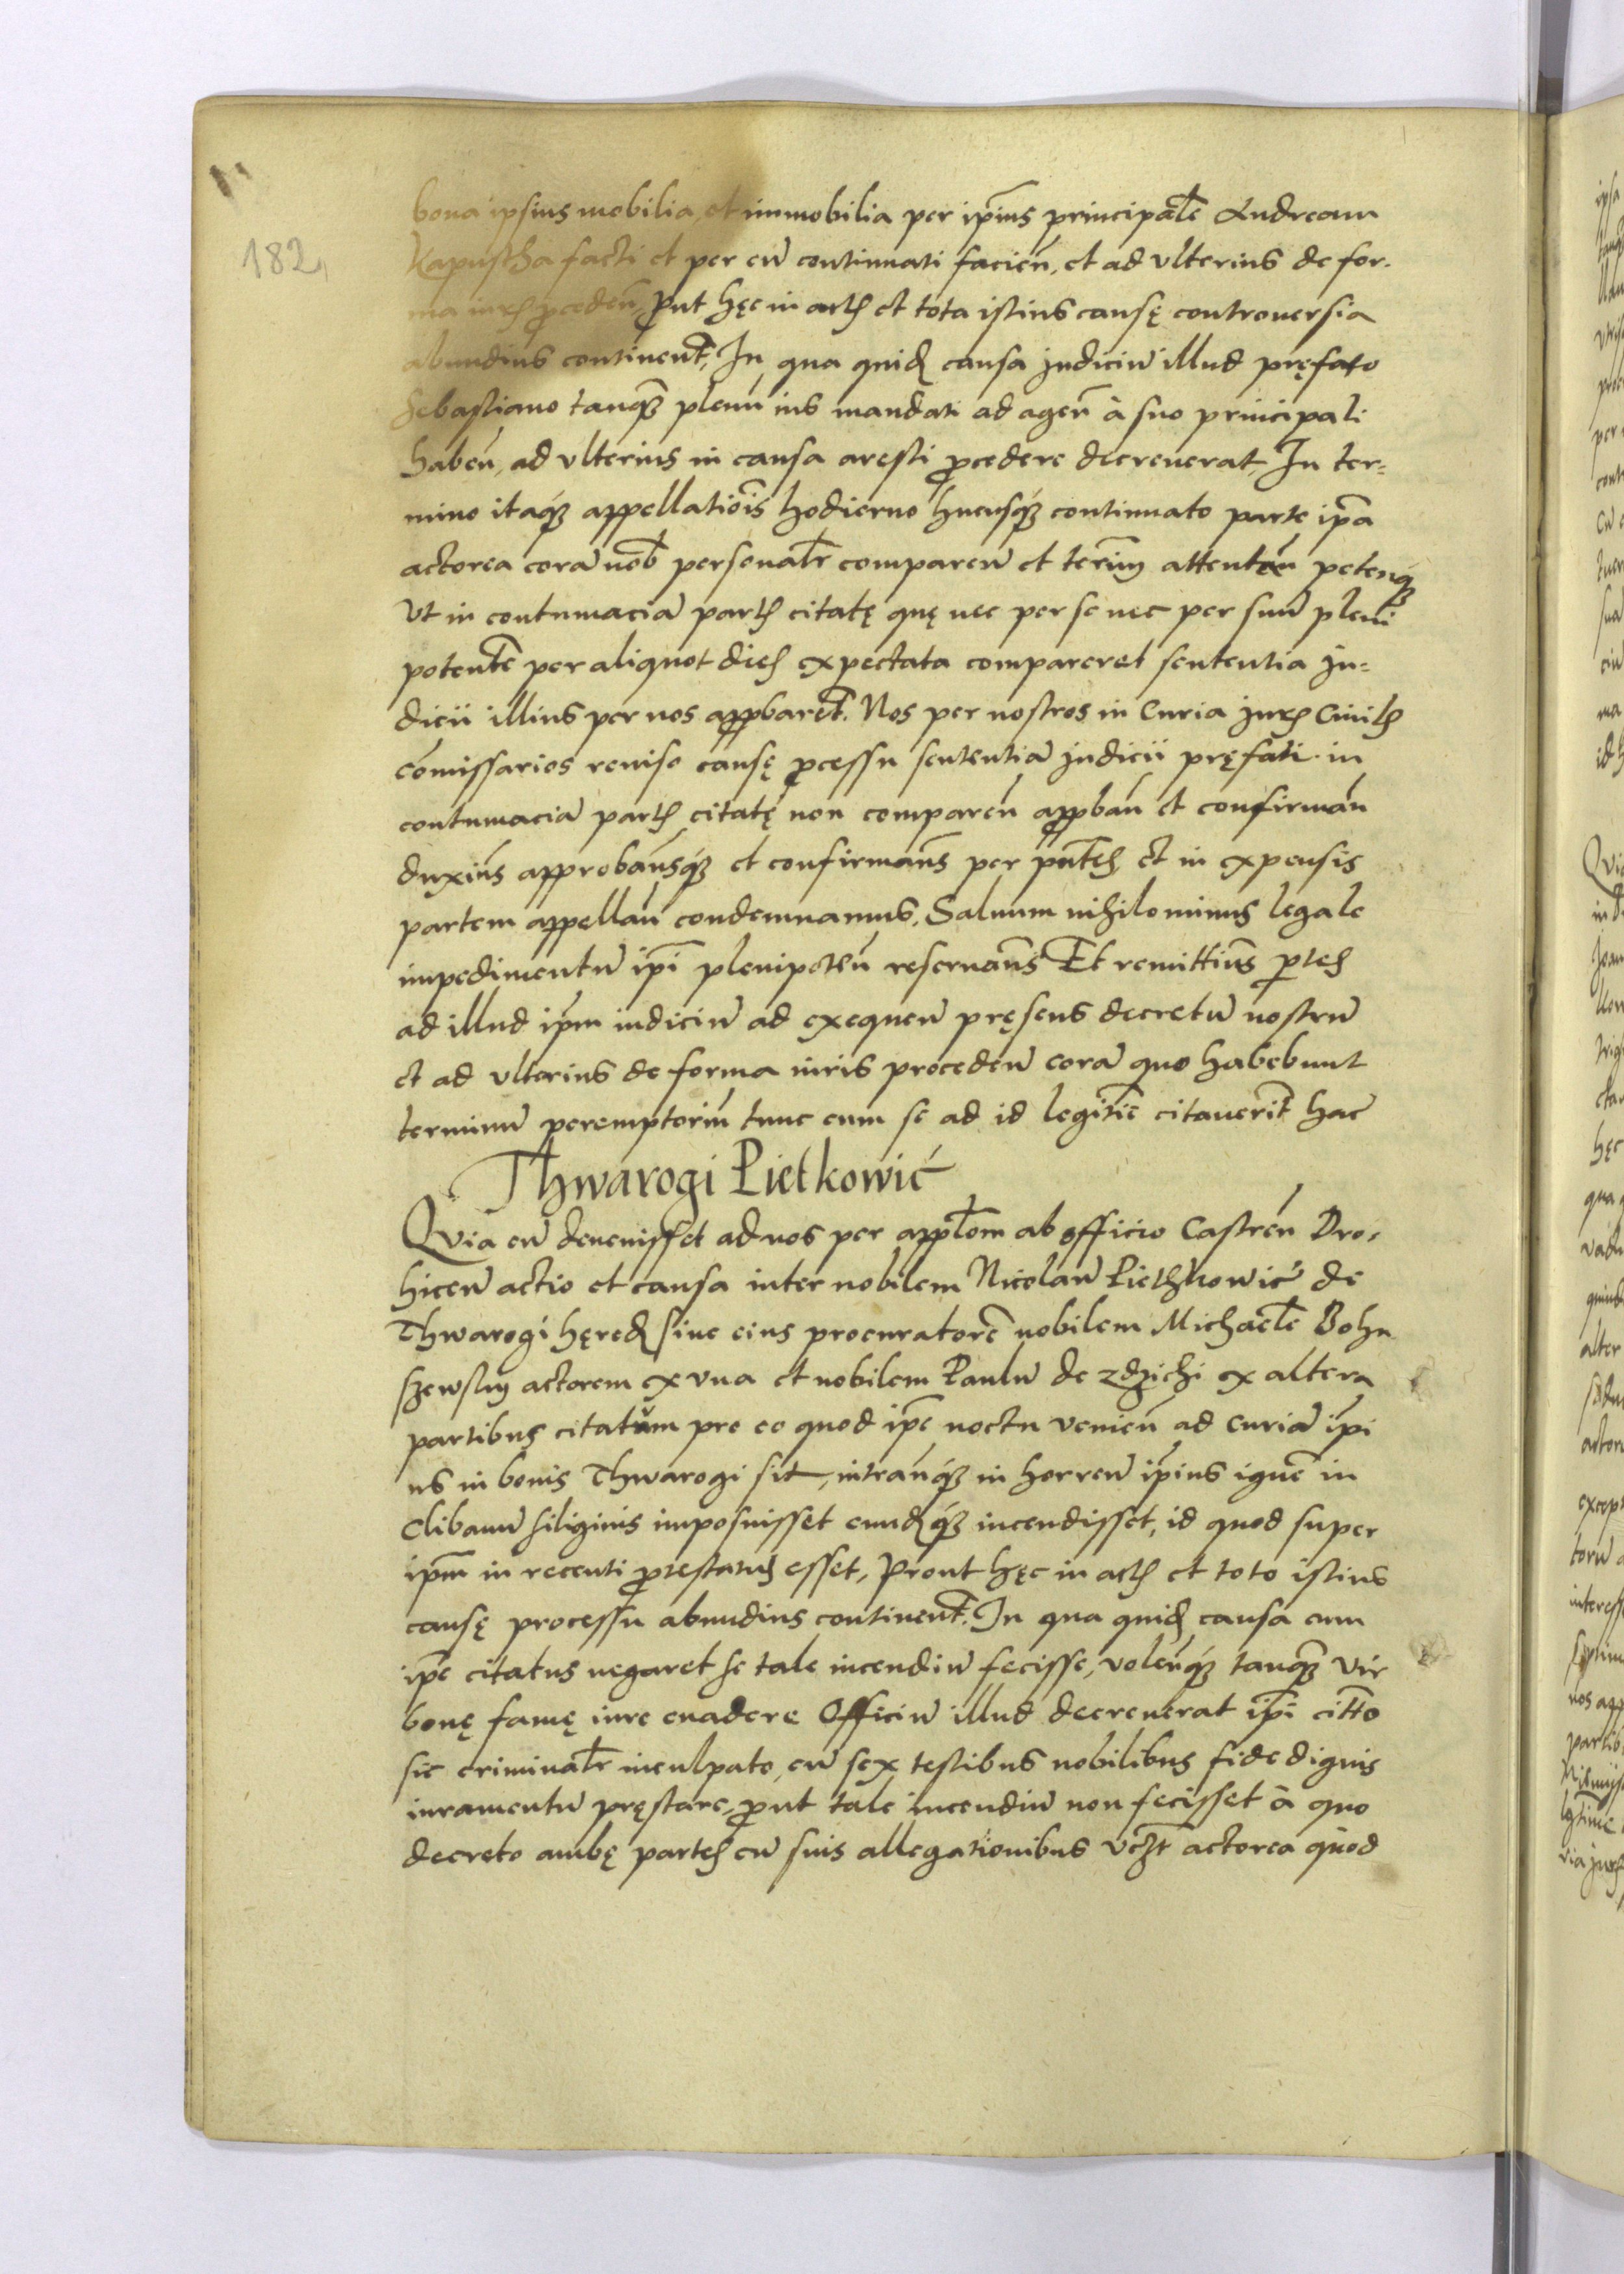 182
bona ipsius mobilia, et immobilia per ip̄ius principalē Andream
Kapustha facti et per eū continuati facień, et ad vlterius de for-
ma iurꝭ ꝓcedeń, ꝓut hęc in actꝭ et tota istius causę controuersia
abundius continent̄, In qua quiđ causa Judiciū illud pręfato
Sebastiano tanqꝫ plenū ius mandati ad ageń à suo principali
habeń, ad vlterius in causa aresti ꝓcedere decreuerat, In ter=
mino itaqꝫ appellatiōis hodierno hucusqꝫ continuato parte ip̄a
actorea corā nob̄ personalr̄ compareń et term̄ attentań peteńqꝫ
Vt in contumaciā partꝭ citatę quę nec per se nec per suū pleni
potentē per aliquot dieꝭ expectata compareret sententia Ju=
dicii illius per nos apꝓbaret̄. Nos per nostros in Curia Jurꝭ Ciuilꝭ
cōmissarios reuiso causę ꝓcessu sententiā Judicii pręfati in
contumaciā partꝭ citatę non compareń apꝓbań et confirmań
duxim̄s approbam̄sqꝫ et confirmam̄s per pn̄tes, et in expensis
partem appellań condemnamus. Saluum nihilominus legale
impedimentū ip̄i plenipoteń reseruam̄s Et remittim̄s ꝑtes
ad illud ip̄m iudiciū ad exequeń pręsens decretū nostrū
et ad vlterius de forma iuris procedeń corā quo habebunt
terminū peremptoriū tunc cum se ad id legitīe citauerīt hac
Thwarogi Pietkowić
Quia cū deuenisset ad nos per app̄lōm ab officio Castreń Dro-
hiceń actio et causa inter nobilem Nicolaū Piethkowić de
Thwarogi hęređ siue eius procuratorē nobilem Michaelē Bohu
szewskij actorem ex vna et nobilem Paulū de Zdzichi ex altera
partibus citatum pro eo quod ip̄e noctu venień ad curiā ip̄i
us in bonis Thwarogi sit, intrańqꝫ in horreū ip̄ius ignē in
Clibanū siliginis imposuisset eunđqꝫ incendisset, id quod super
ip̄m in recenti ꝓtestatū esset, Prout hęc in actꝭ et toto istius
causę processu abundius continent̄. In qua quiđ causa cum
ip̄e citatus negaret se tale incendiū fecisse, voleńqꝫ tanqꝫ vir
bonę famę iure euadere Officiū illud decreuerat ip̄i cittō
sic criminalr̄ inculpato, cū sex testibus nobilibus fide dignis
iuramentū pręstare, ꝓut tale incendiū non fecisset à quo
decreto ambę partes cū suis allegationibus vꝫt actorea quod